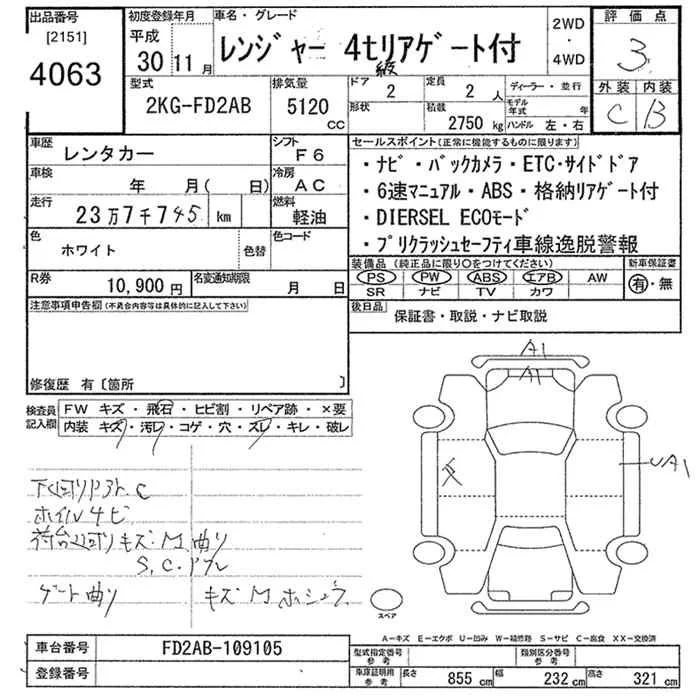 出品番号
[2151]
4063
初度登録年月
平成
30 11月
車名・グレード
レンジャー 4tリアゲート付
級
2WD
・
4WD
評価点
3
外装 内装
C B
型式
2KG-FD2AB
排気量
5120
CC
ドア
2
形状
定員
2 人
積載
2750 kg
ディーラー・並行
モデル年式 年
ハンドル 左・右
車歴
レンタカー
シフト
F6
車検
年 月( 日)
冷房
AC
走行
23万7千745 km
燃料
軽油
色
ホワイト
色替
色コード
R券
10,900円
名変通知期限
月 日
セールスポイント(正常に機能するものに限ります)
・ナビ・バックカメラ・ETC・サイドドア
・6速マニュアル・ABS・格納リアゲート付
・DIERSEL ECOモード
・プリクラッシュセーフティ車線逸脱警報
装備品 (純正品に限り○をつけてください)
PS PW ABS エアB AW
SR ナビ TV カワ
新車保証書
有・無
後日品
保証書・取説・ナビ取説
注意事項申告欄(不具合内容等は具体的に記入して下さい)
修復歴 有〔箇所 〕
検査員
記入欄
FW キズ・飛石・ヒビ割・リペア跡・×要
内装 キズ・汚レ・コゲ・穴・スレ・キレ・破レ
下廻り C
ホイルサビ
荷台廻りキズ M 曲り
S, C.
ゲート曲り
キズ M
A1
A1
UA1
スペア
A－キズ E－エクボ U－凹み W－補修跡 S－サビ C－腐食 XX－交換済
車台番号
FD2AB-109105
登録番号
型式指定番号
参考
類別区分番号
参考
車庫証明用
参考
長さ 855 cm
幅 232 cm
高さ 321 cm